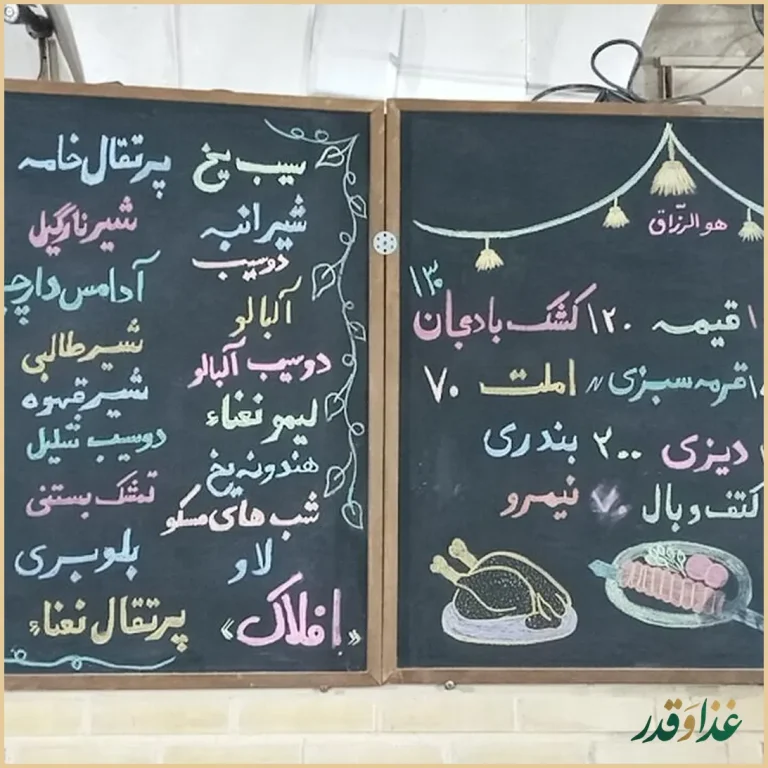 هو الرزّاق
قیمه ۱۲۰ کشک بادمجان ۱۳۰
قرمه سبزی " املت ۷۰
دیزی ۲۰۰ بندری
کتف و بال ۷۰ نیمرو
سیب یخ
شیر انبه
دوسیب
آلبالو
دوسیب آلبالو
لیمو نعناء
هندونه یخ
شب های مسکو
لاو
«افلاک»
پرتقال خامه
شیر نارگیل
آدامس دارچ
شیر طالبی
شیر قهوه
دوسیب شلیل
تمشک بستنی
بلوبری
پرتقال نعناء
غذا و قدر